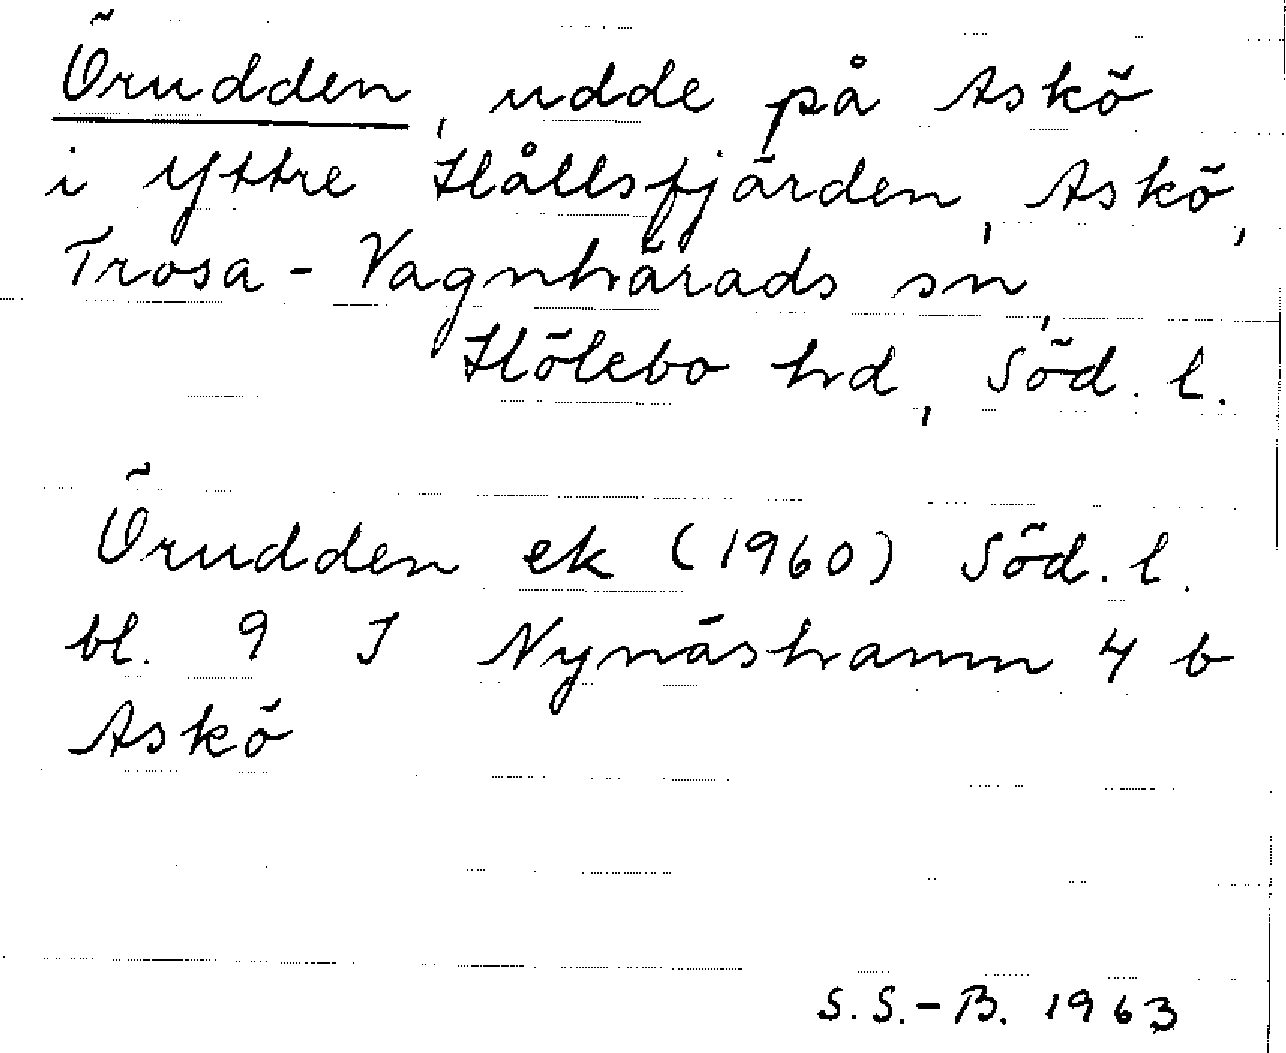 Örudden, udde på Askö
i Yttre Hållsfjärden, Askö,
Trosa-Vagnhärads sn,
Hölebo hd, Söd. l.
Örudden ek (1960) Söd. l.
bl. 9 J Nynäshamn 4 b
Askö
S.S.-B. 1963